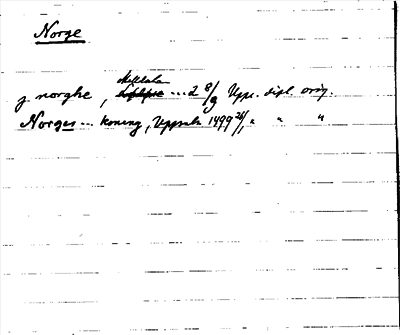 Norge
j norghe, ... 2 8/9 Upps. dipl. orig.
Norges ... koning, Uppsala 1499 " " "